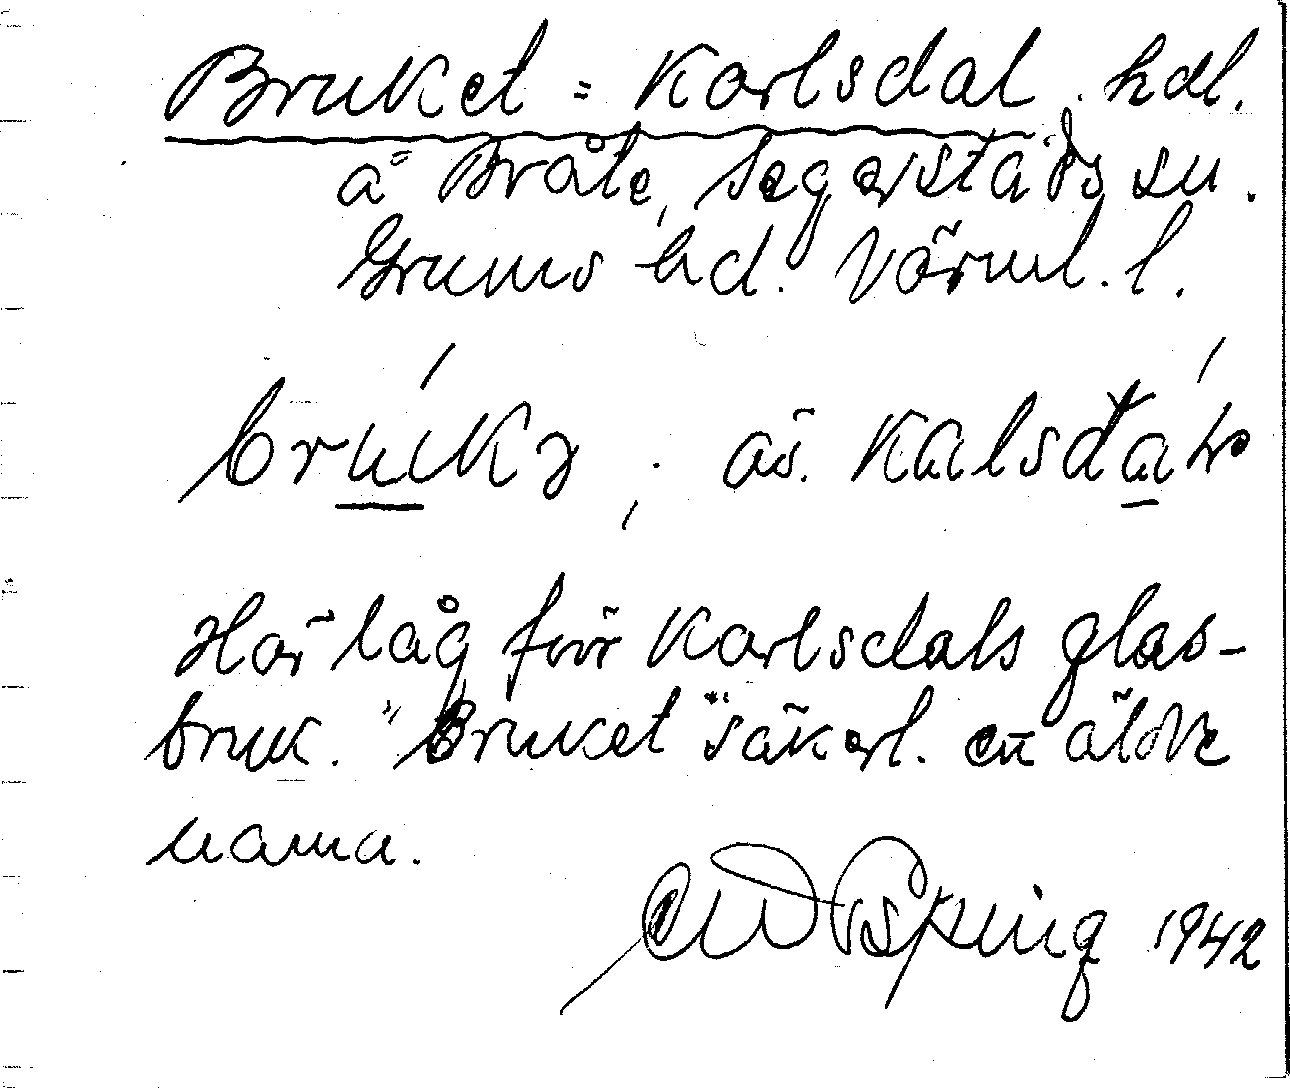 Bruket = Karlsdal hdl.
å Bråte, Segerstads sn.
Grums hd. Värml. l.
äv.
Här låg förr Karlsdals glas-
bruk. "Bruket" säkerl. en äldre
namn.
1942